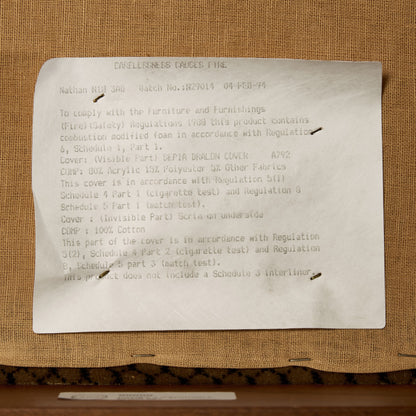 CARELESSNESS CAUSES FIRE
Nathan N18 3AG Batch No.:N29014 04-FEB-94
To comply with the Furniture and Furnishings
(Fire)(Safety) Regulations 1988 this product contains
combustion modified foam in accordance with Regulation
6, Schedule 1, Part 1.
Cover: (Visible Part) SEPIA DRALON COVER A792
COMP: 80% Acrylic 15% Polyester 5% Other Fabrics
This cover is in accordance with Regulation 5(1)
Schedule 4 Part 1 (cigarette test) and Regulation 8
Schedule 5 Part 1 (match test).
Cover : (Invisible Part) Scrim on underside
COMP : 100% Cotton
This part of the cover is in accordance with Regulation
5(2), Schedule 4 Part 2 (cigarette test) and Regulation
8, Schedule 5 part 3 (match test).
This product does not include a Schedule 3 interliner.